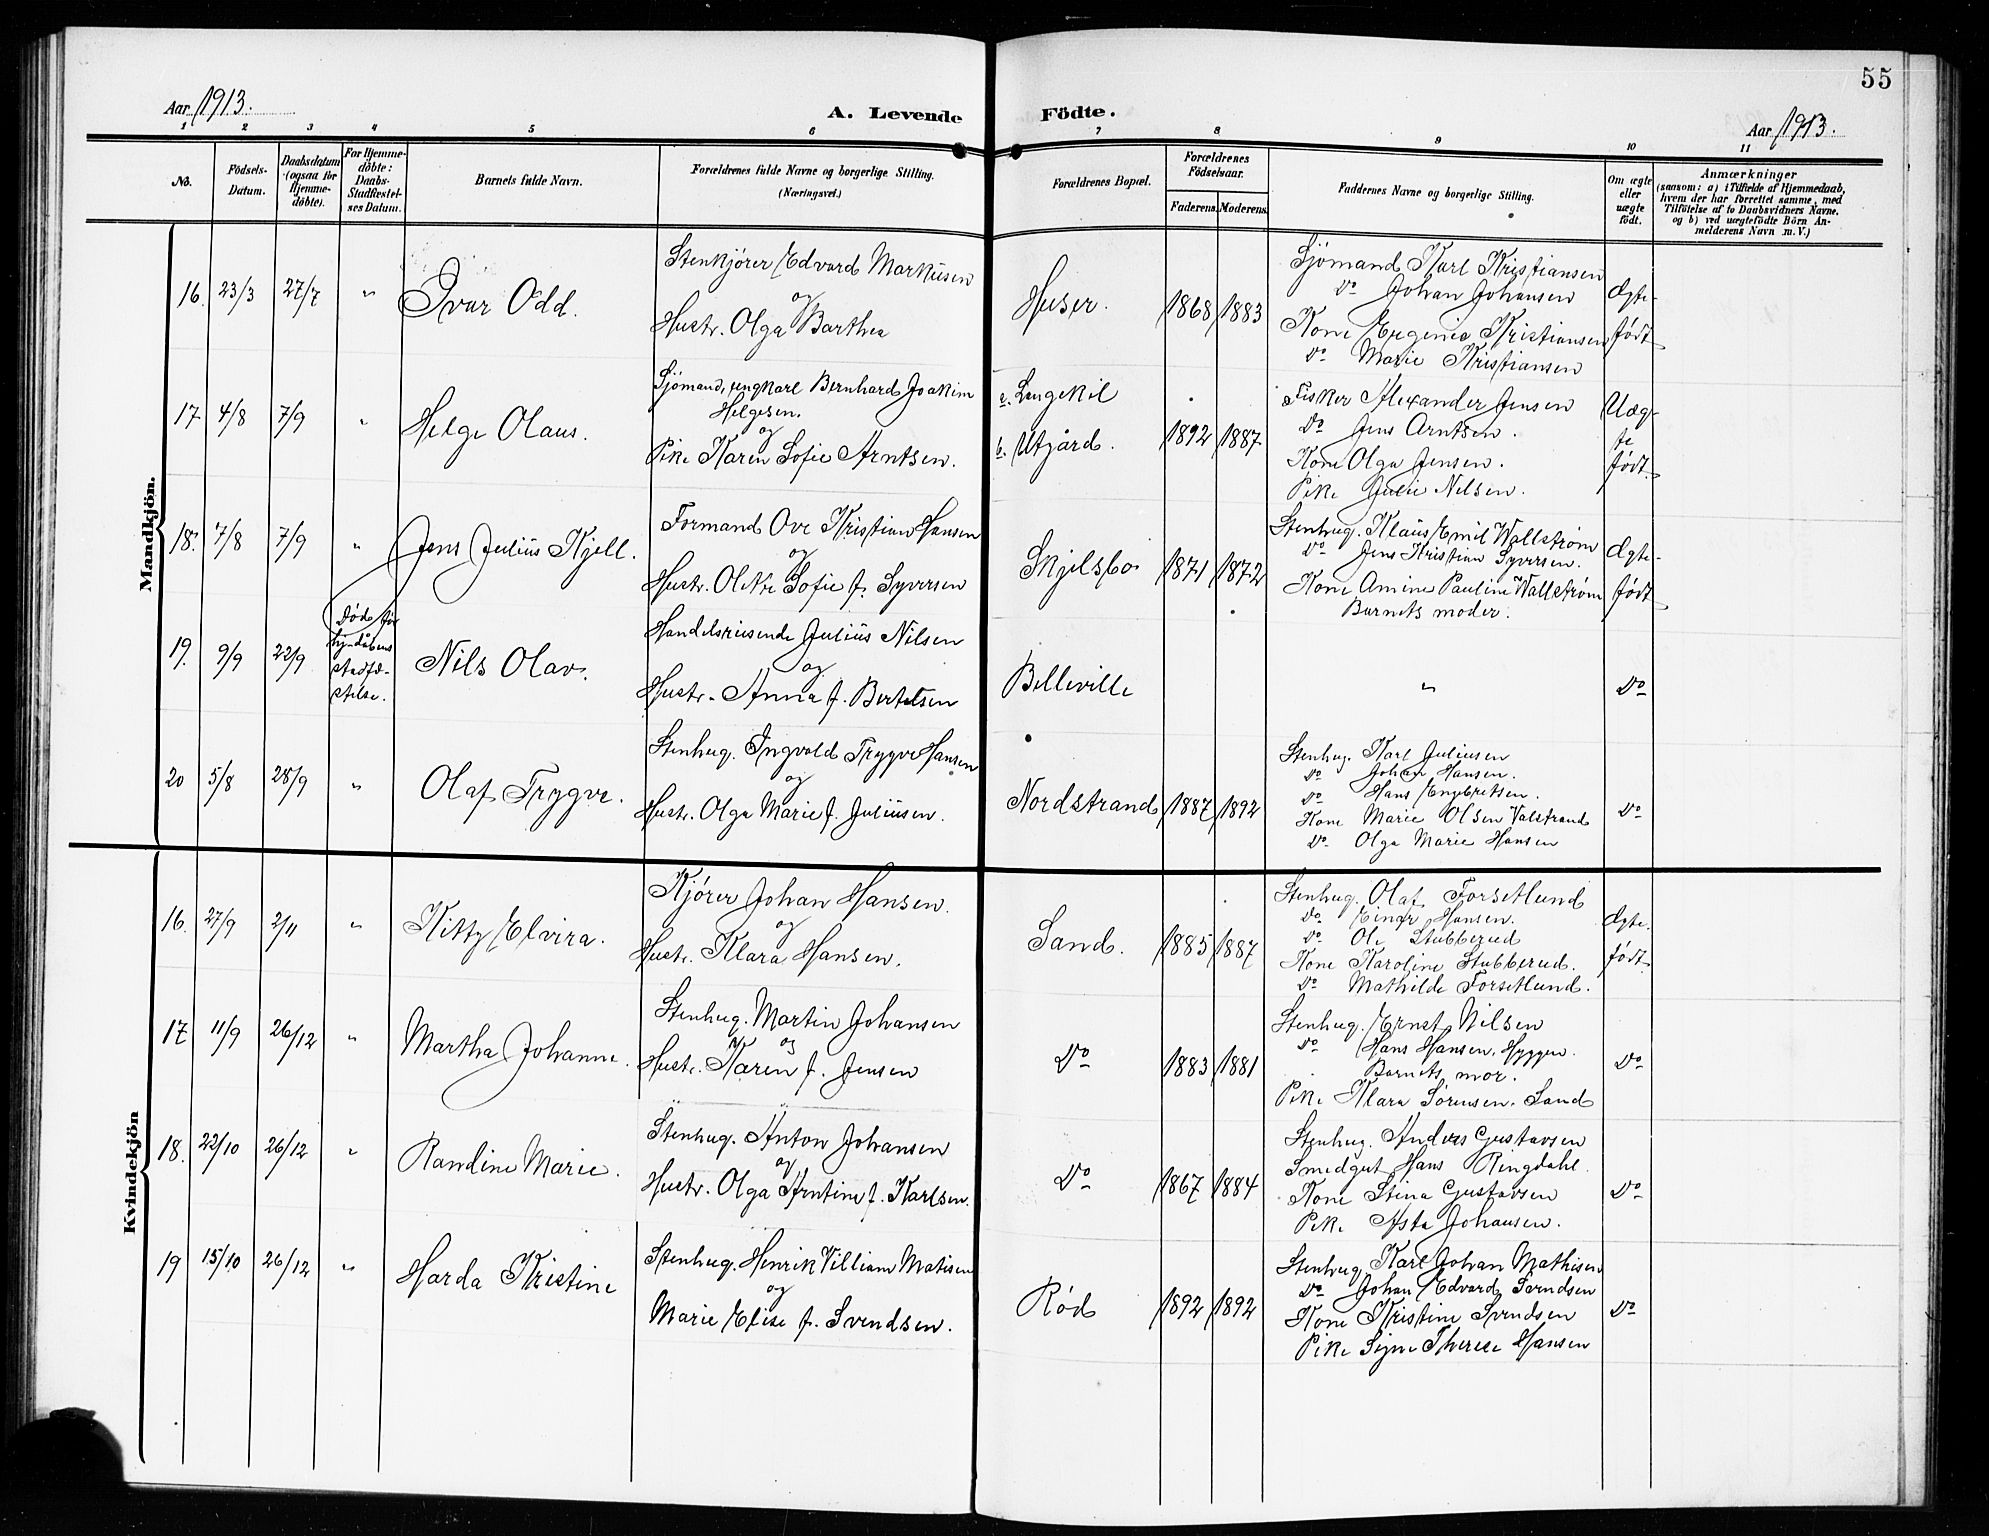 55
Aar 1913.
A. Levende Födte.
Aar 1913.
1 2 3 4 5 6 7 8 9 10 11
No.
Födsels-
Datum.
Daabsdatum
(ogsaa for
Hjemme-
döbte).
For Hjemme-
döbte:
Daabs-
Stadfæstel-
ses Datum.
Barnets fulde Navn.
Forældrenes fulde Navne og borgerlige Stilling.
(Næringsvei.)
Forældrenes Bopæl.
Forældrenes
Födselsaar.
Faderens. Moderens.
Faddernes Navne og borgerlige Stilling.
Om ægte
eller
uægte
födt.
Anmærkninger
(saasom: a) i Tilfælde af Hjemmedaab,
hvem der har forrettet samme, med
Tilföielse af to Daabsvidners Navne,
og b) ved uægtefödte Börn An-
melderens Navn m. V.)
Mandkjön.
16. 23/3 27/7 " Ivar Odd.
Stenkjører Edvard Markusen
og
Hustr. Olga Barthea
Huser. 1868 1883
Sjömand Karl Kristiansen
Do Johan Johansen
Kone Eugenie Kristiansen
Do Marie Kristiansen
Ægte-
født
17 4/8 7/9 " Helge Olaus.
Sjömand, ungkarl Bernhard Joakim
Helgesen.
og
Pike Karen Sofie Arntsen.
a. Langekil
b. Utgård. 1892 1887
Fisker Alexander Jensen
Do Jens Arntsen.
Kone Olga Jensen.
Pike Julie Nilsen.
Uæg-
te
født.
18. 7/8 7/9 " Jens Julius Kjell.
Formand Ove Kristian Hansen
og
Hustr. Olette Sofie f. Syversen
Skjelsbo 1871 1872
Stenhug. Klaus Emil Wallstrøm
Do Jens Kristian Syversen.
Kone Amine Pauline Wallstrøm
Barnets moder.
Ægte-
født
19. 9/9 22/9
Døde før
stadfæ-
stelse.
Nils Olav.
Handelsreisende Julius Nilsen
og
Hustr. Anna f. Bertelsen
Belleville " Do
20 5/8 28/9 " Olaf Trygve.
Stenhug. Ingvald Trygve Hansen
og
Hustr. Olga Marie f. Juliusen.
Nordstrand 1887 1892
Stenhug. Karl Juliusen
Do Johan Hansen.
Do Hans Engebretsen.
Kone Marie Olsen Valstrand
Do Olga Marie Hansen
Do
Kvindekjön
16. 27/9 2/11 " Kitty Elvira.
Kjører Johan Hansen.
og
Hustr. Klara Hansen.
Sand. 1885 1887
Stenhug. Olaf Forsetlund
Do Einar Hansen.
Do Ole Stubberud
Kone Karoline Stubberud.
Do Mathilde Forsetlund.
Ægte.
født.
17 11/9 26/12 " Martha Johanne.
Stenhug. Martin Johansen
og
Hustr. Karen f. Jensen
Do 1883 1881
Stenhug. Ernst Nilsen
Do Hans Hansen, Hyggen.
Barnets mor.
Pike Klara Sörensen. Sand
Do
18. 22/10 26/12 " Randine Marie.
Stenhug. Anton Johansen
og
Hustr. Olga Arntine f. Karlsen.
Do 1867 1884
Stenhug. Anders Gustavsen
Smedgut Hans Ringdahl.
Kone Stina Gustavsen
Pike Asta Johansen.
Do
19 15/10 26/12 " Harda Kristine
Stenhug. Henrik Villiam Matisen
og
Marie Elise f. Svendsen.
Rød 1892 1892
Stenhug Karl Johan Mathisen
Do Johan Edvard Svendsen
Kone Kristine Svendsen
Pike Signe Therese Hansen
Do